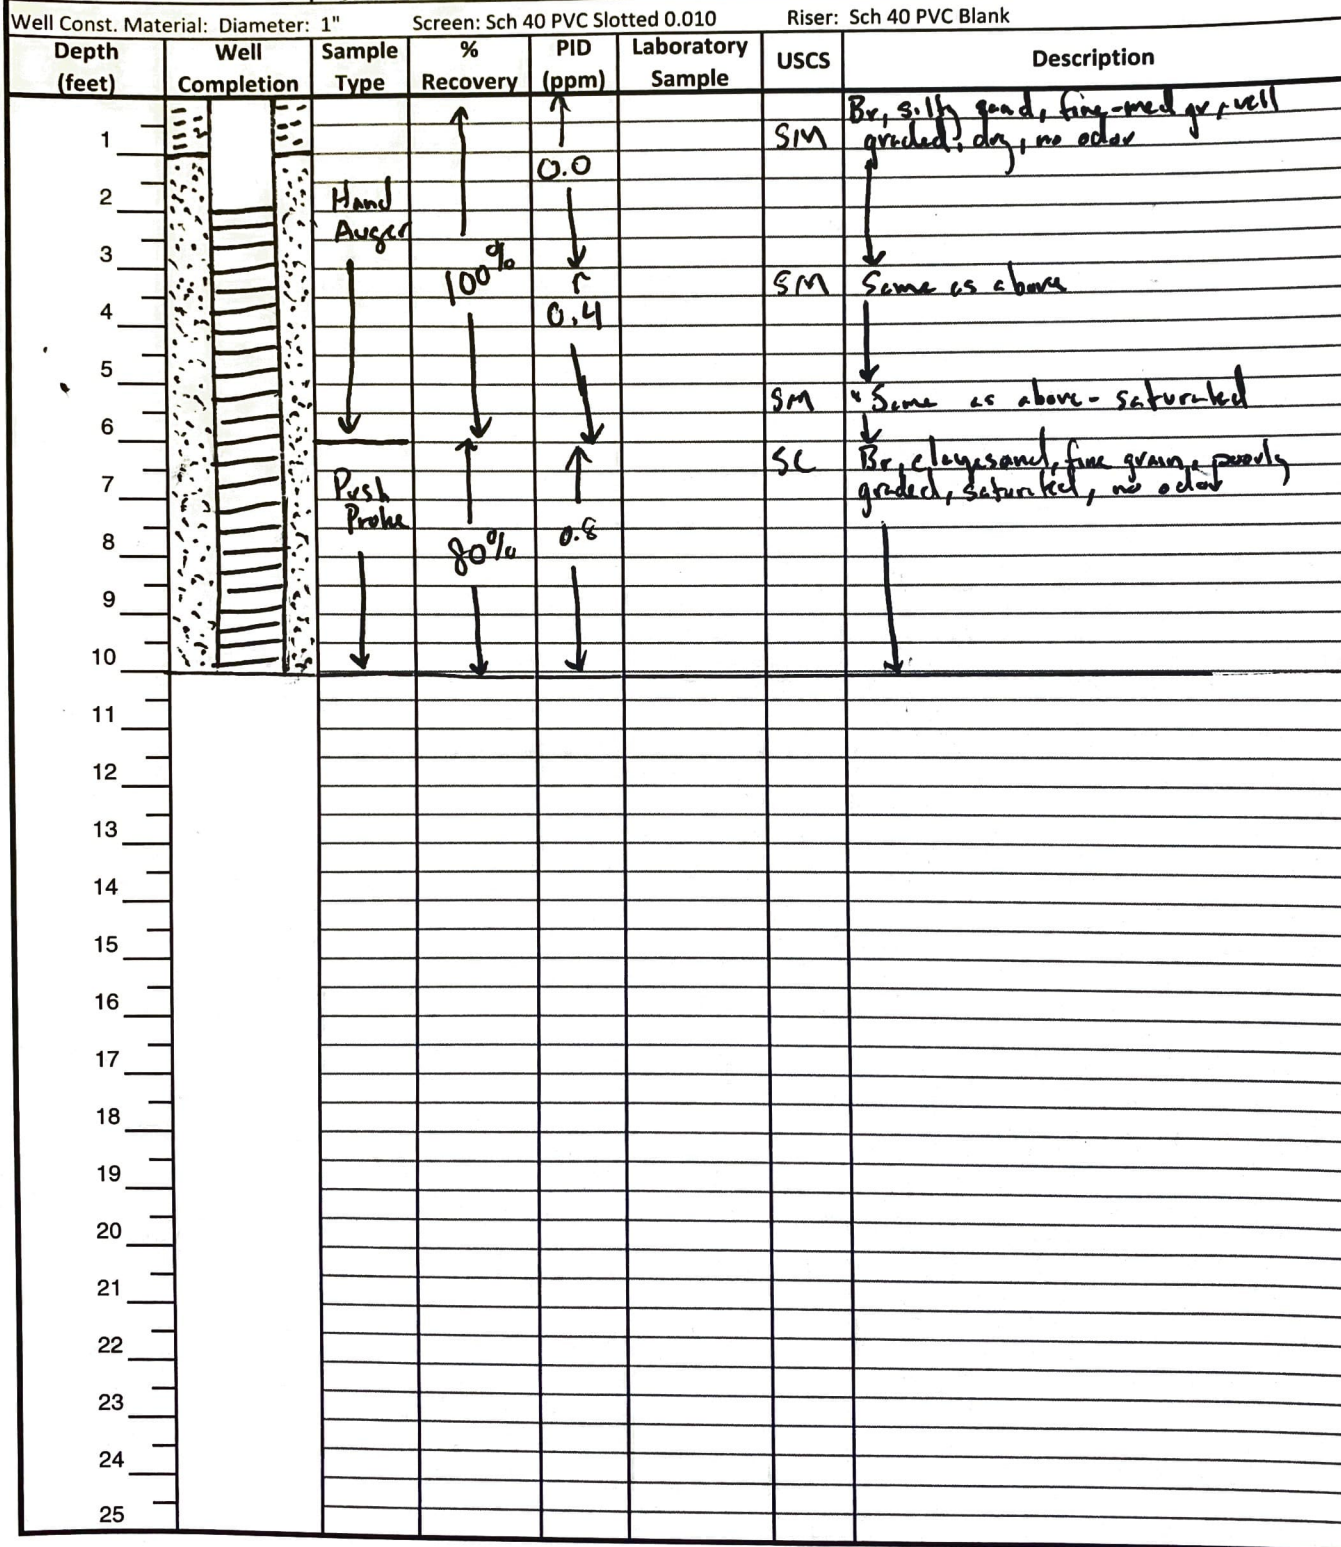 Well Const. Material: Diameter: 1" Screen: Sch 40 PVC Slotted 0.010 Riser: Sch 40 PVC Blank
Depth (feet) Well Completion Sample Type % Recovery PID (ppm) Laboratory Sample USCS Description
Br, silty sand, fine-med gr, well
1 SM graded, dry, no odor
0.0
2 Hand
Auger
3 100%
SM Same as above
4 0.4
5
SM Same as above - saturated
6
SC Br, clayey sand, fine grain, poorly
7 Push graded, saturated, no odor
Probe
8 80% 0.8
9
10
11
12
13
14
15
16
17
18
19
20
21
22
23
24
25